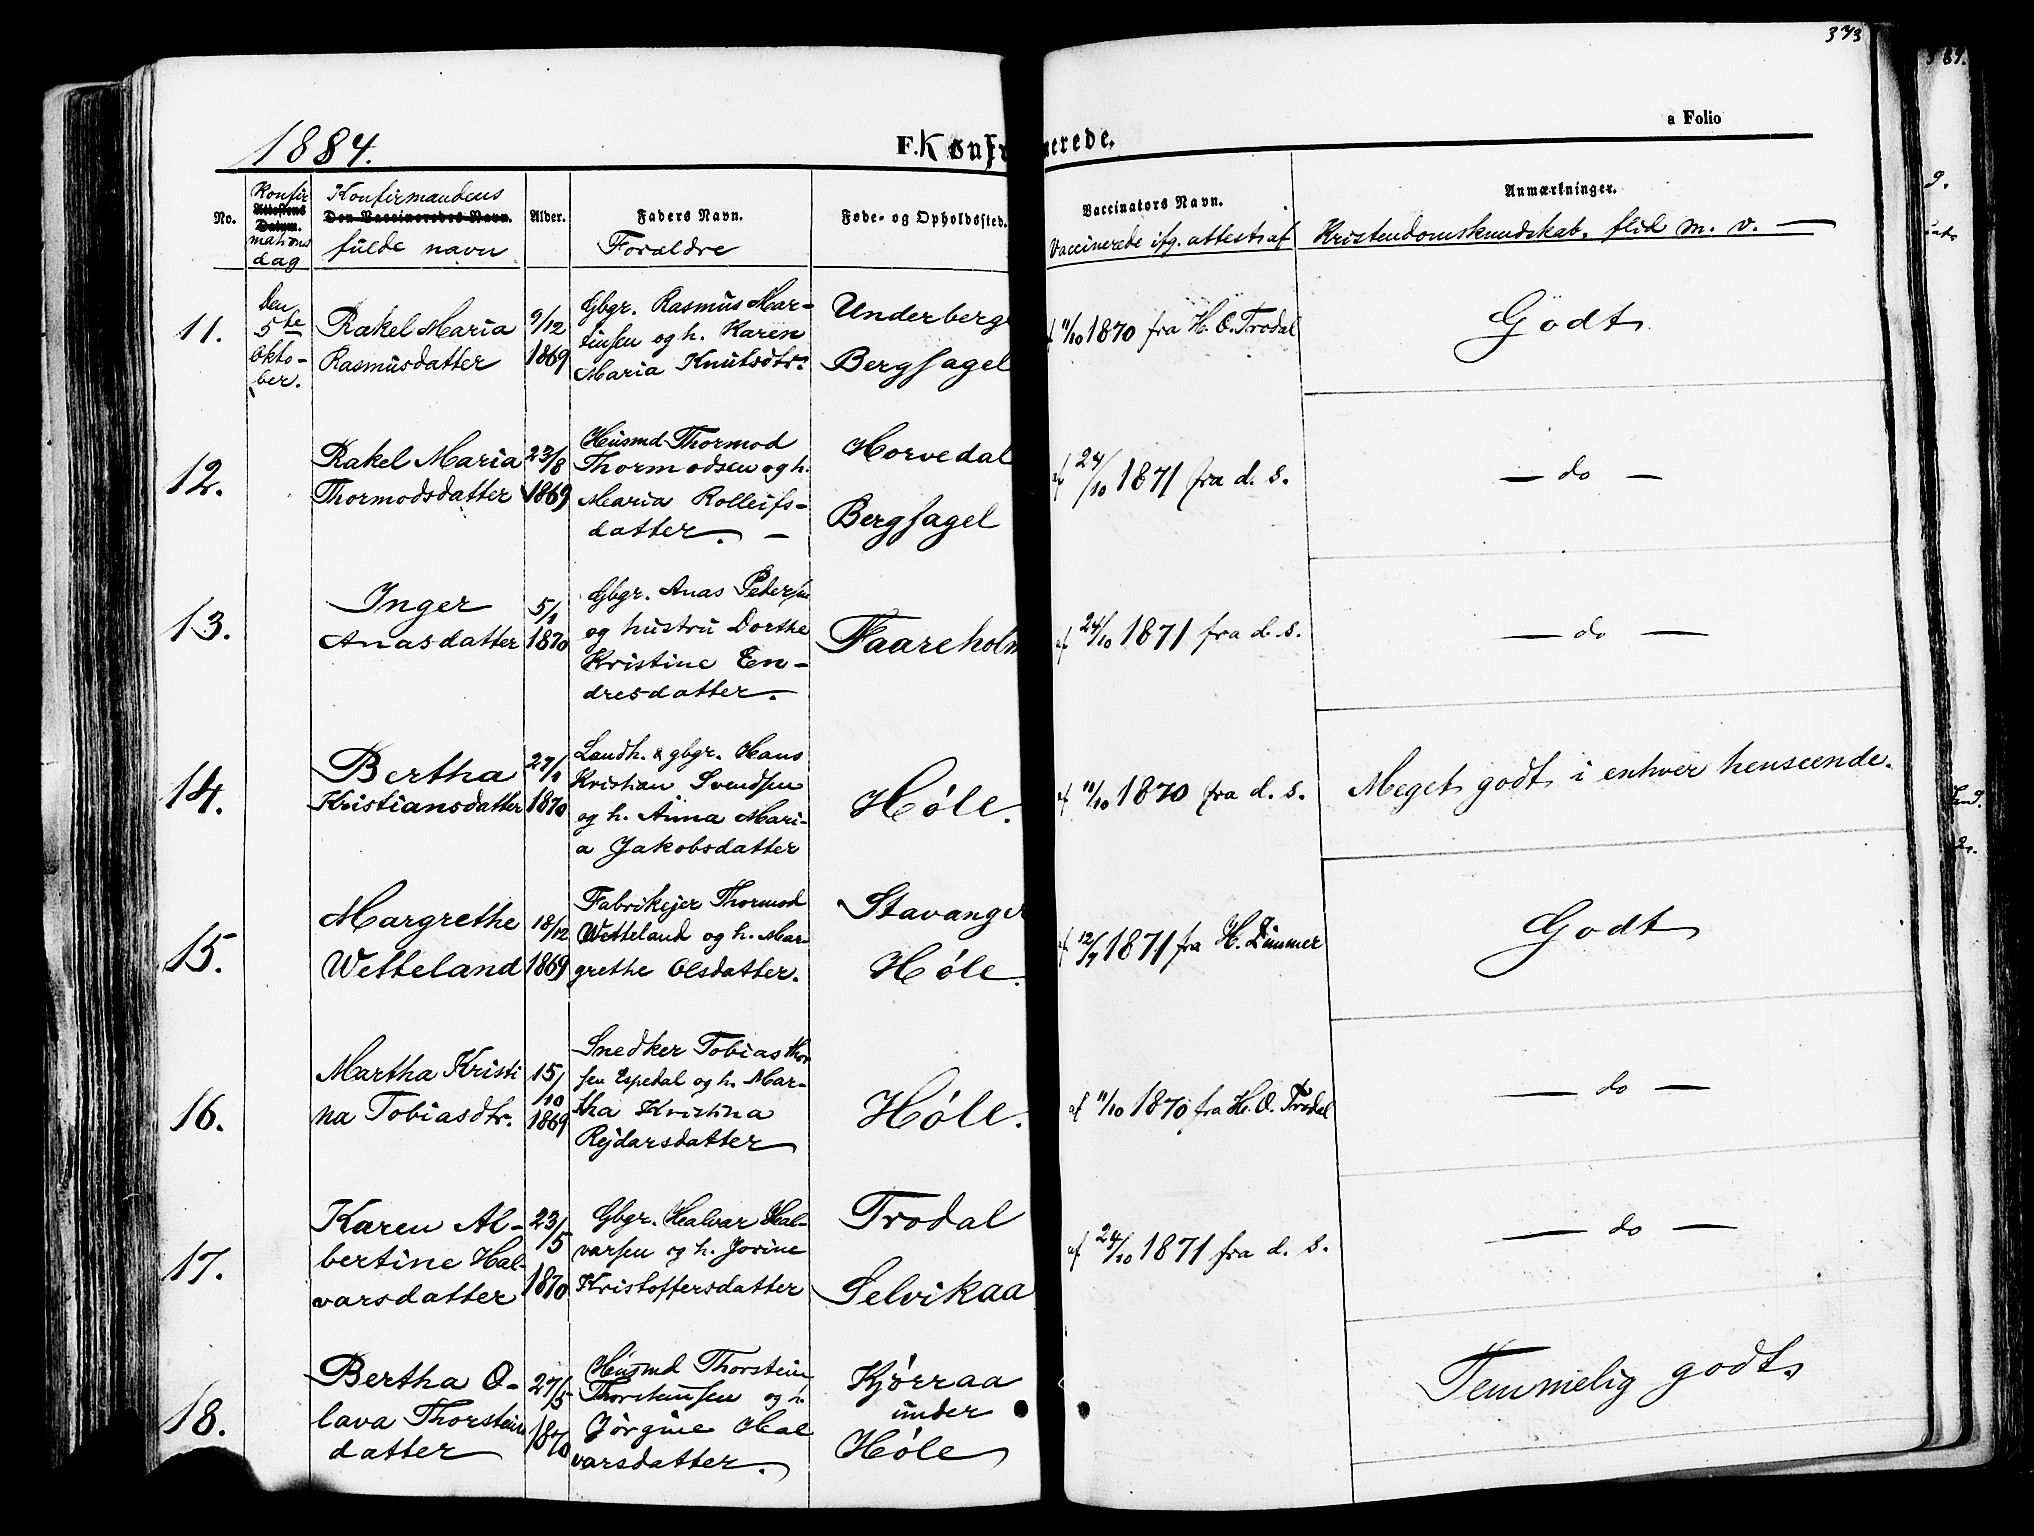 373
1884.
F. Konfirmerede.
a Folio
No.
Konfir
Attestens
Datum.
mations
dag
Konfirmandens
Den Vaccineredes Navn.
fulde navn
Alder.
Faders Navn.
Forældre
Føde- og Opholdssted.
Vaccinators Navn.
Vaccinerede ifg. attest af
Anmærkninger.
Kristendomskundskab, flid m. v. —
11.
Den
5te
Okto-
ber.
Rakel Maria
Rasmusdatter
9/12
1869
Gbgr. Rasmus Mar-
tinsen og h. Karen
Maria Knutsdtr.
Underberge
Bergsagel
af 11/10 1870 fra H. O. Trodal
Godt
12.
Rakel Maria
Thormodsdatter
23/8
1869
Husmd Thormod
Thormodsen og h.
Maria Rolleifs-
datter. —
Horvedal
Bergsagel
af 24/10 1871 fra d. s.
— do —
13.
Inger
Anasdatter
5/1
1870
Gbgr. Anas Pedersen
og hustru Dorthe
Kristine En-
dresdatter. —
Faareholm
af 24/10 1871 fra d. s.
— do —
14.
Bertha
Kristiansdatter
27/1
1870
Landh. & gbgr. Hans
Kristian Svendsen
og h. Anna Mari-
a Jakobsdatter
Høle.
af 11/10 1870 fra d. s.
Meget godt i enhver henseende.
15.
Margrethe
Wetteland
18/12
1869
Fabrikejer Thormod
Wetteland og h. Mar-
grethe Olsdatter.
Stavanger
Høle.
af 12/7 1871 fra H. Zimmer
Godt
16.
Martha Kristi
na Tobiasdtr.
15/10
1869
Snedker Tobias Thor
sen Espedal og h. Mar-
tha Kristina
Rejdarsdatter
Høle.
af 11/10 1870 fra H. O. Trodal
— do —
17.
Karen Al-
bertine Hal-
varsdatter
23/5
1870
Gbgr. Halvar Hal-
varsen og h. Jorine
Kristoffersdatter
Trodal
Selvikaa
af 24/10 1871 fra d. s.
— do —
18.
Bertha O-
lava Thorsteins
datter
27/5
1870
Husmd Thorstein
Thorsteinsen og h.
Jørgine Hal
varsdatter.
Kjørraa
under
Høle
Temmelig godt.